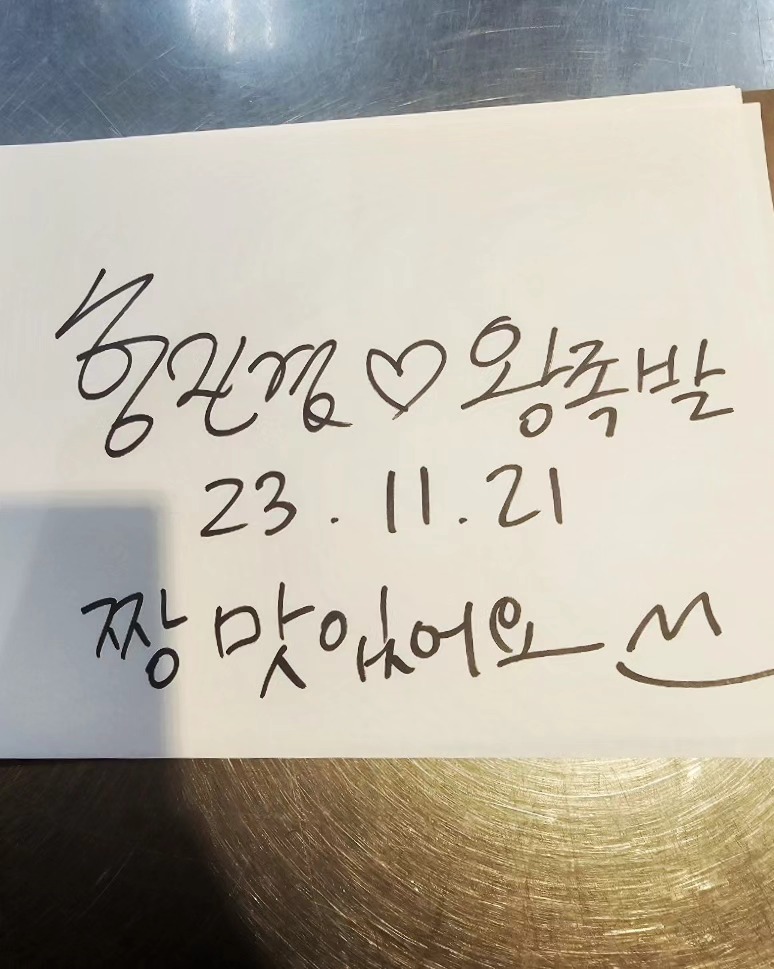 홍진경♡왕족발
23.11.21
짱 맛있어요